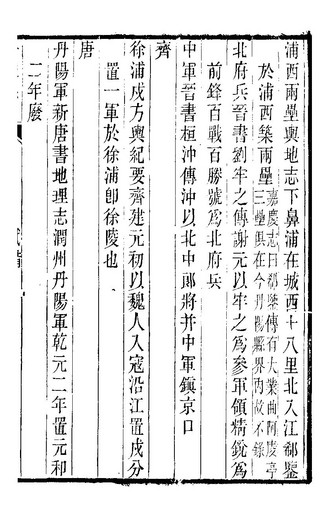 浦西兩壘輿地志下鼻浦在城西十八里北入江郗鑒
於浦西築兩壘嘉慶志曰郗鑒傳有大業曲阿庱亭
三壘俱在今丹陽縣界內故不錄
北府兵晉書劉牢之傳謝元以牢之爲參軍領精銳爲
前鋒百戰百勝號爲北府兵
中軍晉書桓沖傳沖以北中郎將并中軍鎭京口
齊
徐浦戍方輿紀要齊建元初以魏人入寇沿江置戍分
置一軍於徐浦卽徐陵也
唐
丹陽軍新唐書地理志潤州丹陽軍乾元二年置元和
二年廢